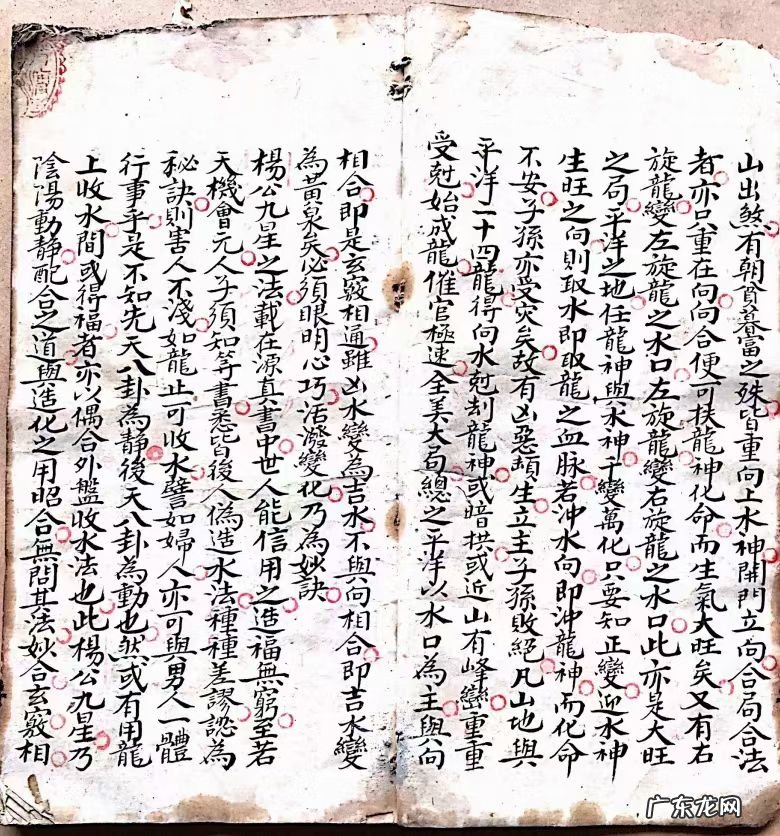 山出煞有朝貧暮富之殊皆重向上水神開門立向合局合法
者亦只重在向向合便可扶龍神化命而生氣大旺矣又有右
旋龍變左旋龍之水口左旋龍變右旋龍之水口此亦是大旺
之局平洋之地任龍神與水神千變萬化只要知正變迎水神
生旺之向則取水即取龍之血脉若沖水向即沖龍神而化命
不安子孫亦受灾矣故有凶惡頻生立主子孫敗絕凡山地與
平洋一十四龍得向水尅刦龍神或暗拱或近山有峰巒重重
受尅始成龍催官極速全美大局總之平洋以水口為主與向
相合即是玄竅相通雖凶水變為吉水不與向相合即吉水變
為黃泉矣必須眼明心巧活潑變化乃為妙訣
楊公九星之法載在源真書中世人能信用之造福無窮至若
天機會元人子須知等書悉皆後人偽造水法種種差謬認為
秘訣則害人不淺如龍止可收水譬如婦人亦可與男人一體
行事乎是不知先天八卦為靜後天八卦為動也然或有用龍
上收水間或得福者亦以偶合外盤收水法也此楊公九星乃
陰陽動靜配合之道與造化之用昭合無間其法妙合玄竅相
广东龙网